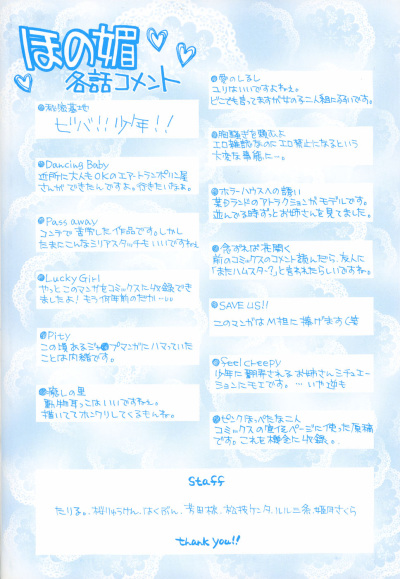 ほの媚
各話コメント
●秘密基地
ビバ!!少年!!
●Dancing Baby
近所に大人もOKのエアートランポリン屋
さんができたんですよ。行きたいなぁ。
●Pass away
コンテで苦労した作品です。しかし
たまにこんなシリアスタッチもいいですねぇ
●Lucky Girl
やっとこのマンガをコミックスに収録でき
ましたよ!もう何年前のだか…
●Pity
この頃あるジャ●プマンガにハマっていた
ことは内緒です。
●癒しの里
動物耳っこはいいですねぇ。
描いててホンワリしてくるもんね。
●愛のしるし
ユリはいいですよねぇ。
どこでも言ってますが女の子二人組に弱いです。
●胸騒ぎを頼むよ
エロ雑誌なのにエロ禁止になるという
大変な事態に…。
●ホラーハウスへの誘い
某○ランドのアトラクションがモデルです。
並んでる時ずっとお姉さんを見てました。
●念ずれば花開く
前のコミックスのコメント読んだら、友人に
「またハムスター?」と言われたらしいですね。
●SAVE US!!
このマンガはM姐に捧げます(笑
●feel creepy
少年に翻弄されるお姉さんシチュエー
ションにモエです。…いや逆も
●ピンクほっぺたな二人
コミックスの宣伝ページに使った原稿
です。これを機会に収録。
Staff
たりる。、桜りゅうけん、はくぶん、
松枝ケンタ、ルルニ条、姫月さくら
thank you!!